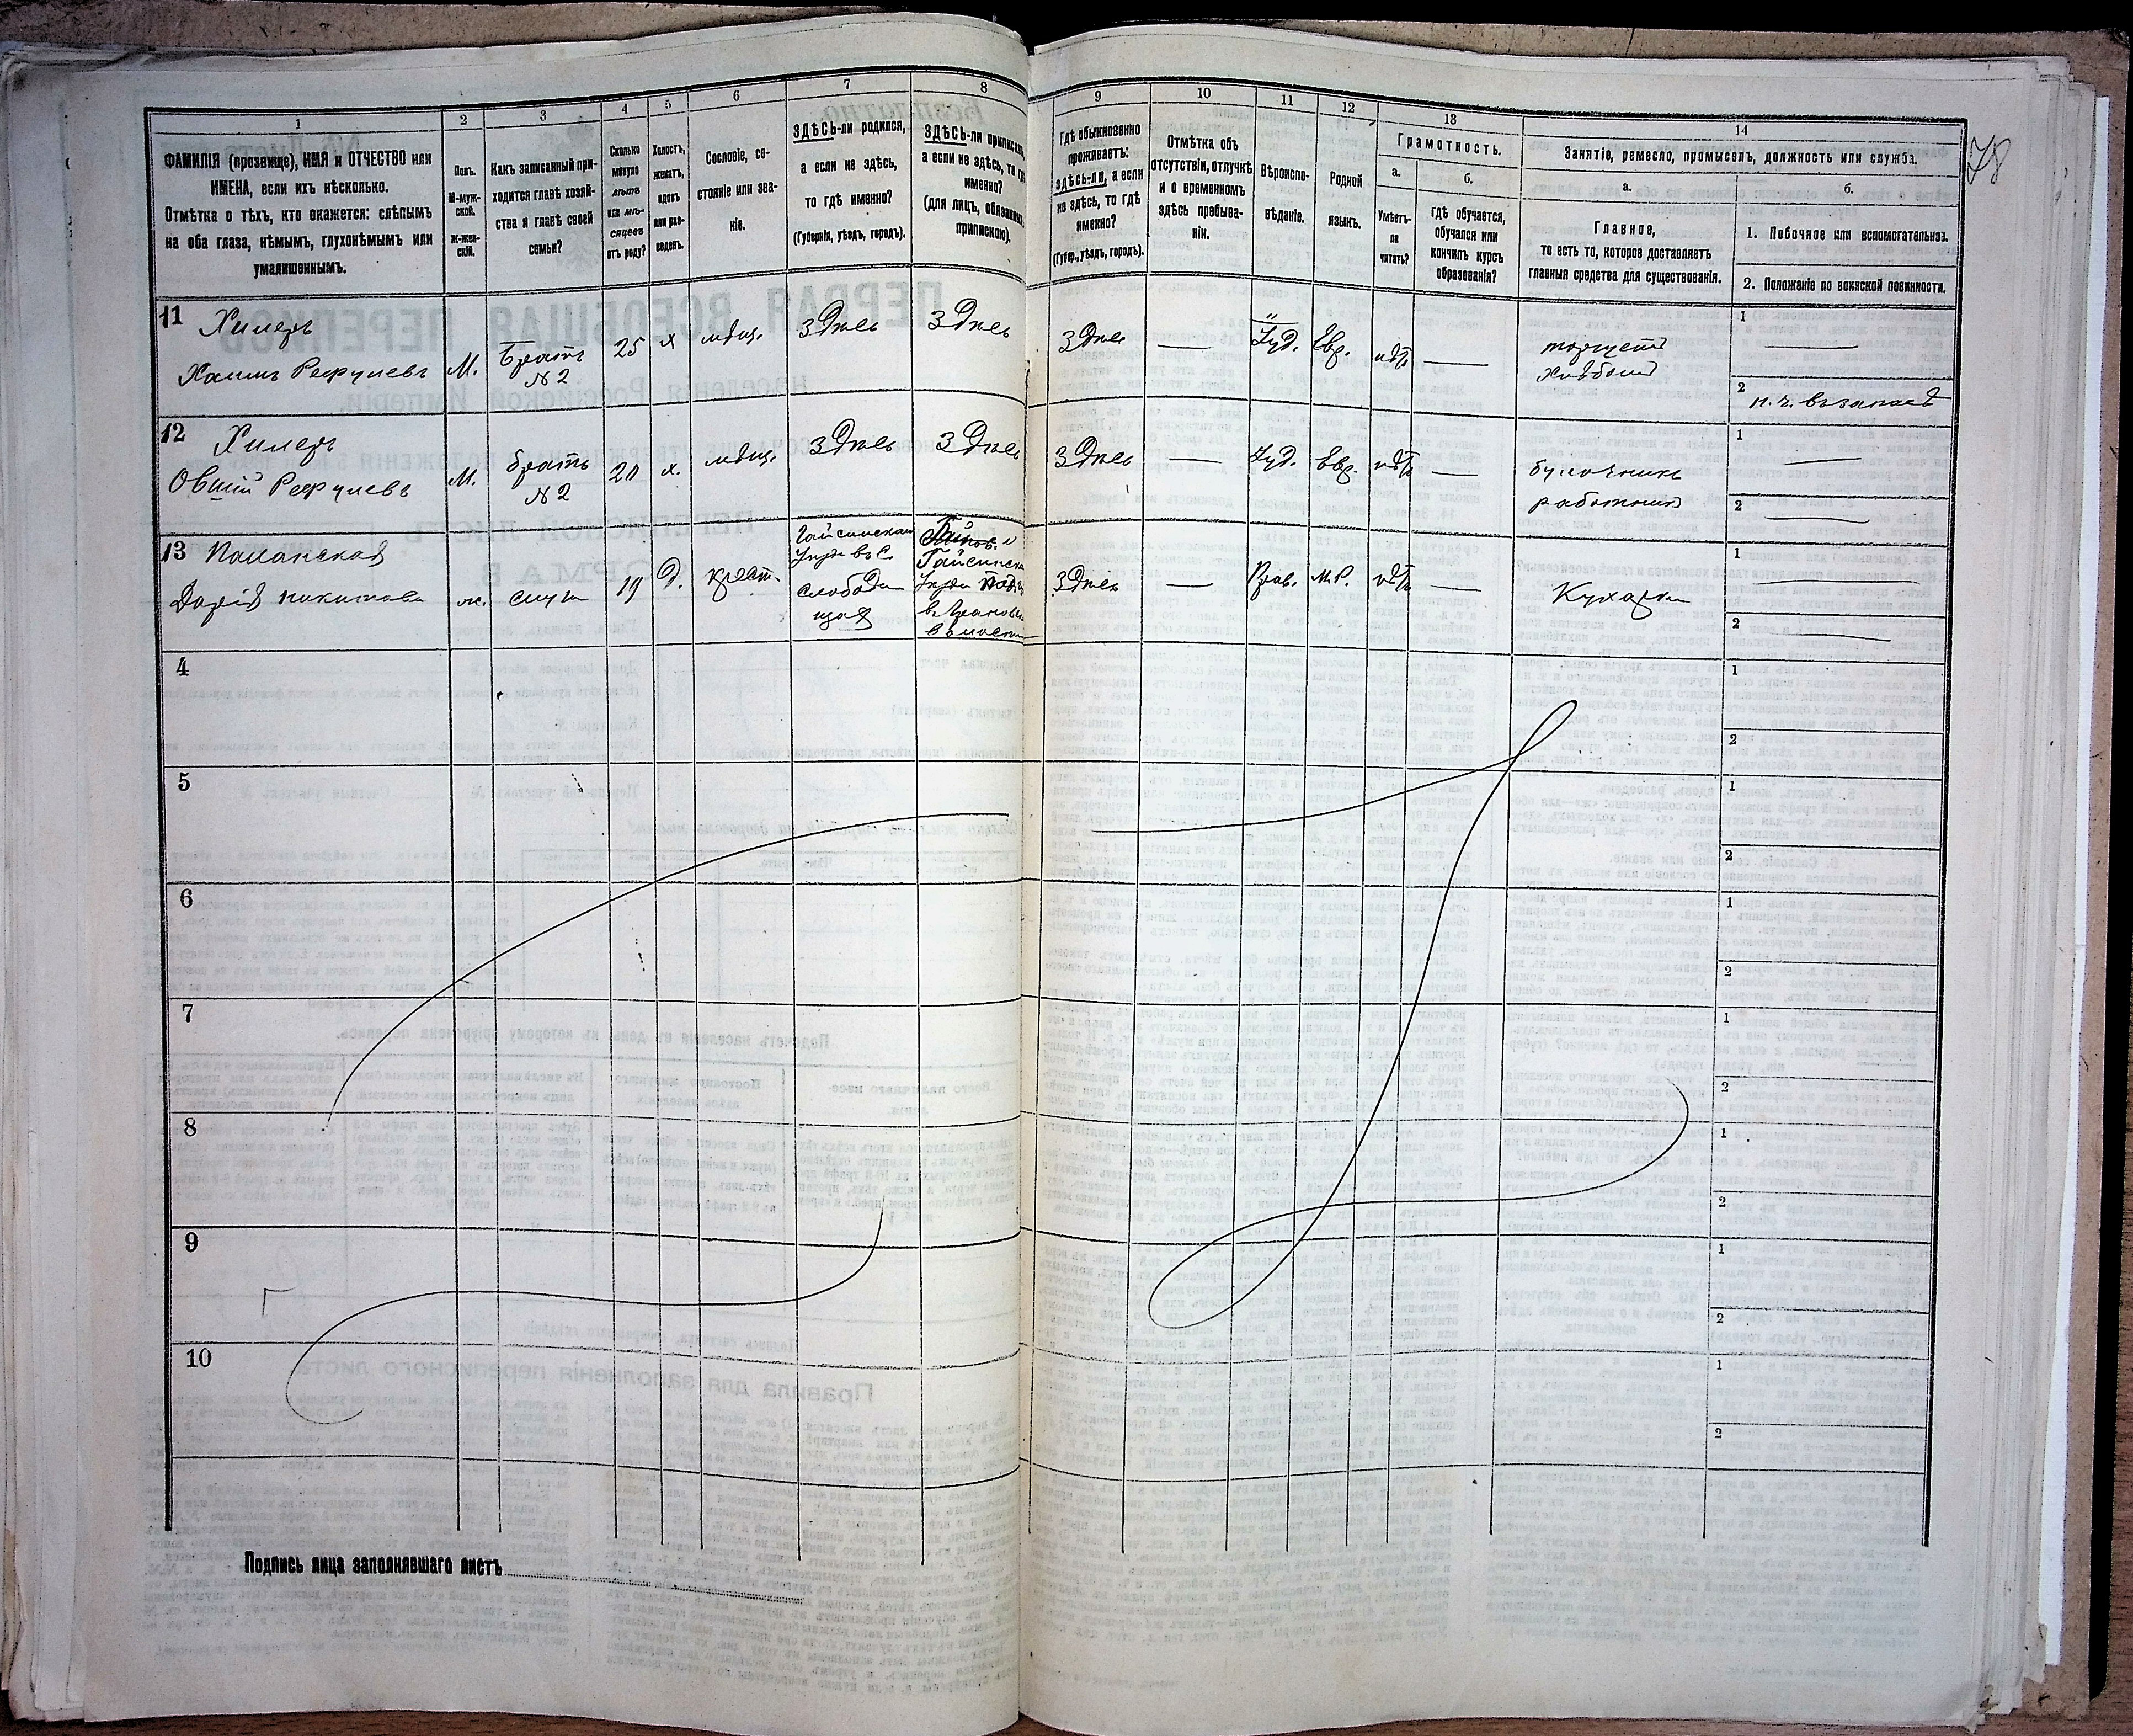 1 2 3 4 5 6 7 8 9 10 11 12 13 14
ФАМИЛІЯ (прозвище), ИМЯ и ОТЧЕСТВО или
ИМЕНА, если ихъ нѣсколько.
Отмѣтка о тѣхъ, кто окажется: слѣпымъ
на оба глаза, нѣмымъ, глухонѣмымъ или
умалишеннымъ.
Полъ.
М-муж-
ской.
Ж-жен-
скій.
Какъ записанный при-
ходится главѣ хозяй-
ства и главѣ своей
семьи?
Сколько
минуло
лѣтъ
или мѣ-
сяцевъ
отъ роду?
Холостъ,
женатъ,
вдовъ
или раз-
веденъ.
Сословіе, со-
стояніе или зва-
ніе.
ЗДѢСЬ-ли родился,
а если не здѣсь,
то гдѣ именно?
(Губернія, уѣздъ, городъ).
ЗДѢСЬ-ли приписанъ,
а если не здѣсь, то гдѣ
именно?
(для лицъ, обязанныхъ
припискою).
Гдѣ обыкновенно
проживаетъ:
здѣсь-ли, а если
не здѣсь, то гдѣ
именно?
(Губер., уѣздъ, городъ).
Отмѣтка объ
отсутствіи, отлучкѣ
и о временномъ
здѣсь пребыва-
ніи.
Вѣроиспо-
вѣданіе.
Родной
языкъ.
Грамотность.
а.
Умѣетъ-
ли
читать?
б.
Гдѣ обучается,
обучался или
кончилъ курсъ
образованія?
Занятіе, ремесло, промыселъ, должность или служба.
а.
Главное,
то есть то, которое доставляетъ
главныя средства для существованія.
б.
1. Побочное или вспомогательное.
2. Положеніе по воинской повинности.
78
11 Хилеръ
Хаимъ
М. Братъ
№ 2
25 х мѣщ. Здѣсь Здѣсь Здѣсь — Іуд. Евр. нѣтъ —
торгуетъ
хлѣбомъ
1 —
2 н. ч. въ запасѣ
12 Хилеръ
Овшій
М. братъ
№ 2
20 х. мѣщ. Здѣсь Здѣсь Здѣсь — Іуд. Евр. нѣтъ —
булочникъ
работникъ
1 —
2 —
13
Дарія
ж. 19 д. крест.
слободи
щая
Здѣсь — Прав. М.Р. нѣтъ — Кухарка
1 —
2 —
4 1
2
5 1
2
6 1
2
7 1
2
8 1
2
9 1
2
10 1
2
Подпись лица заполнявшаго листъ